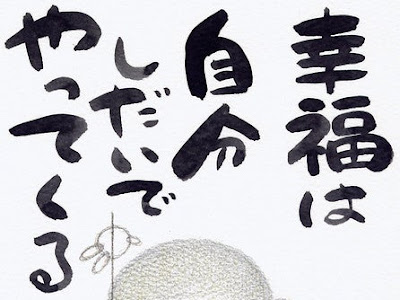 幸福は
自分
しだいで
やってくる